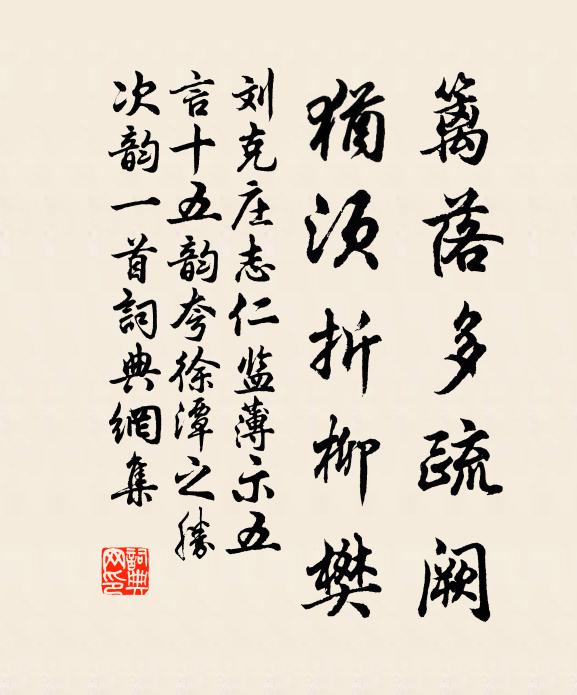 篱落多疏阙
猶须折柳樊
刘克庄志仁监薄示五
言十五韵夸徐潭之勝
次韵一首詞典網集
詞典
网印